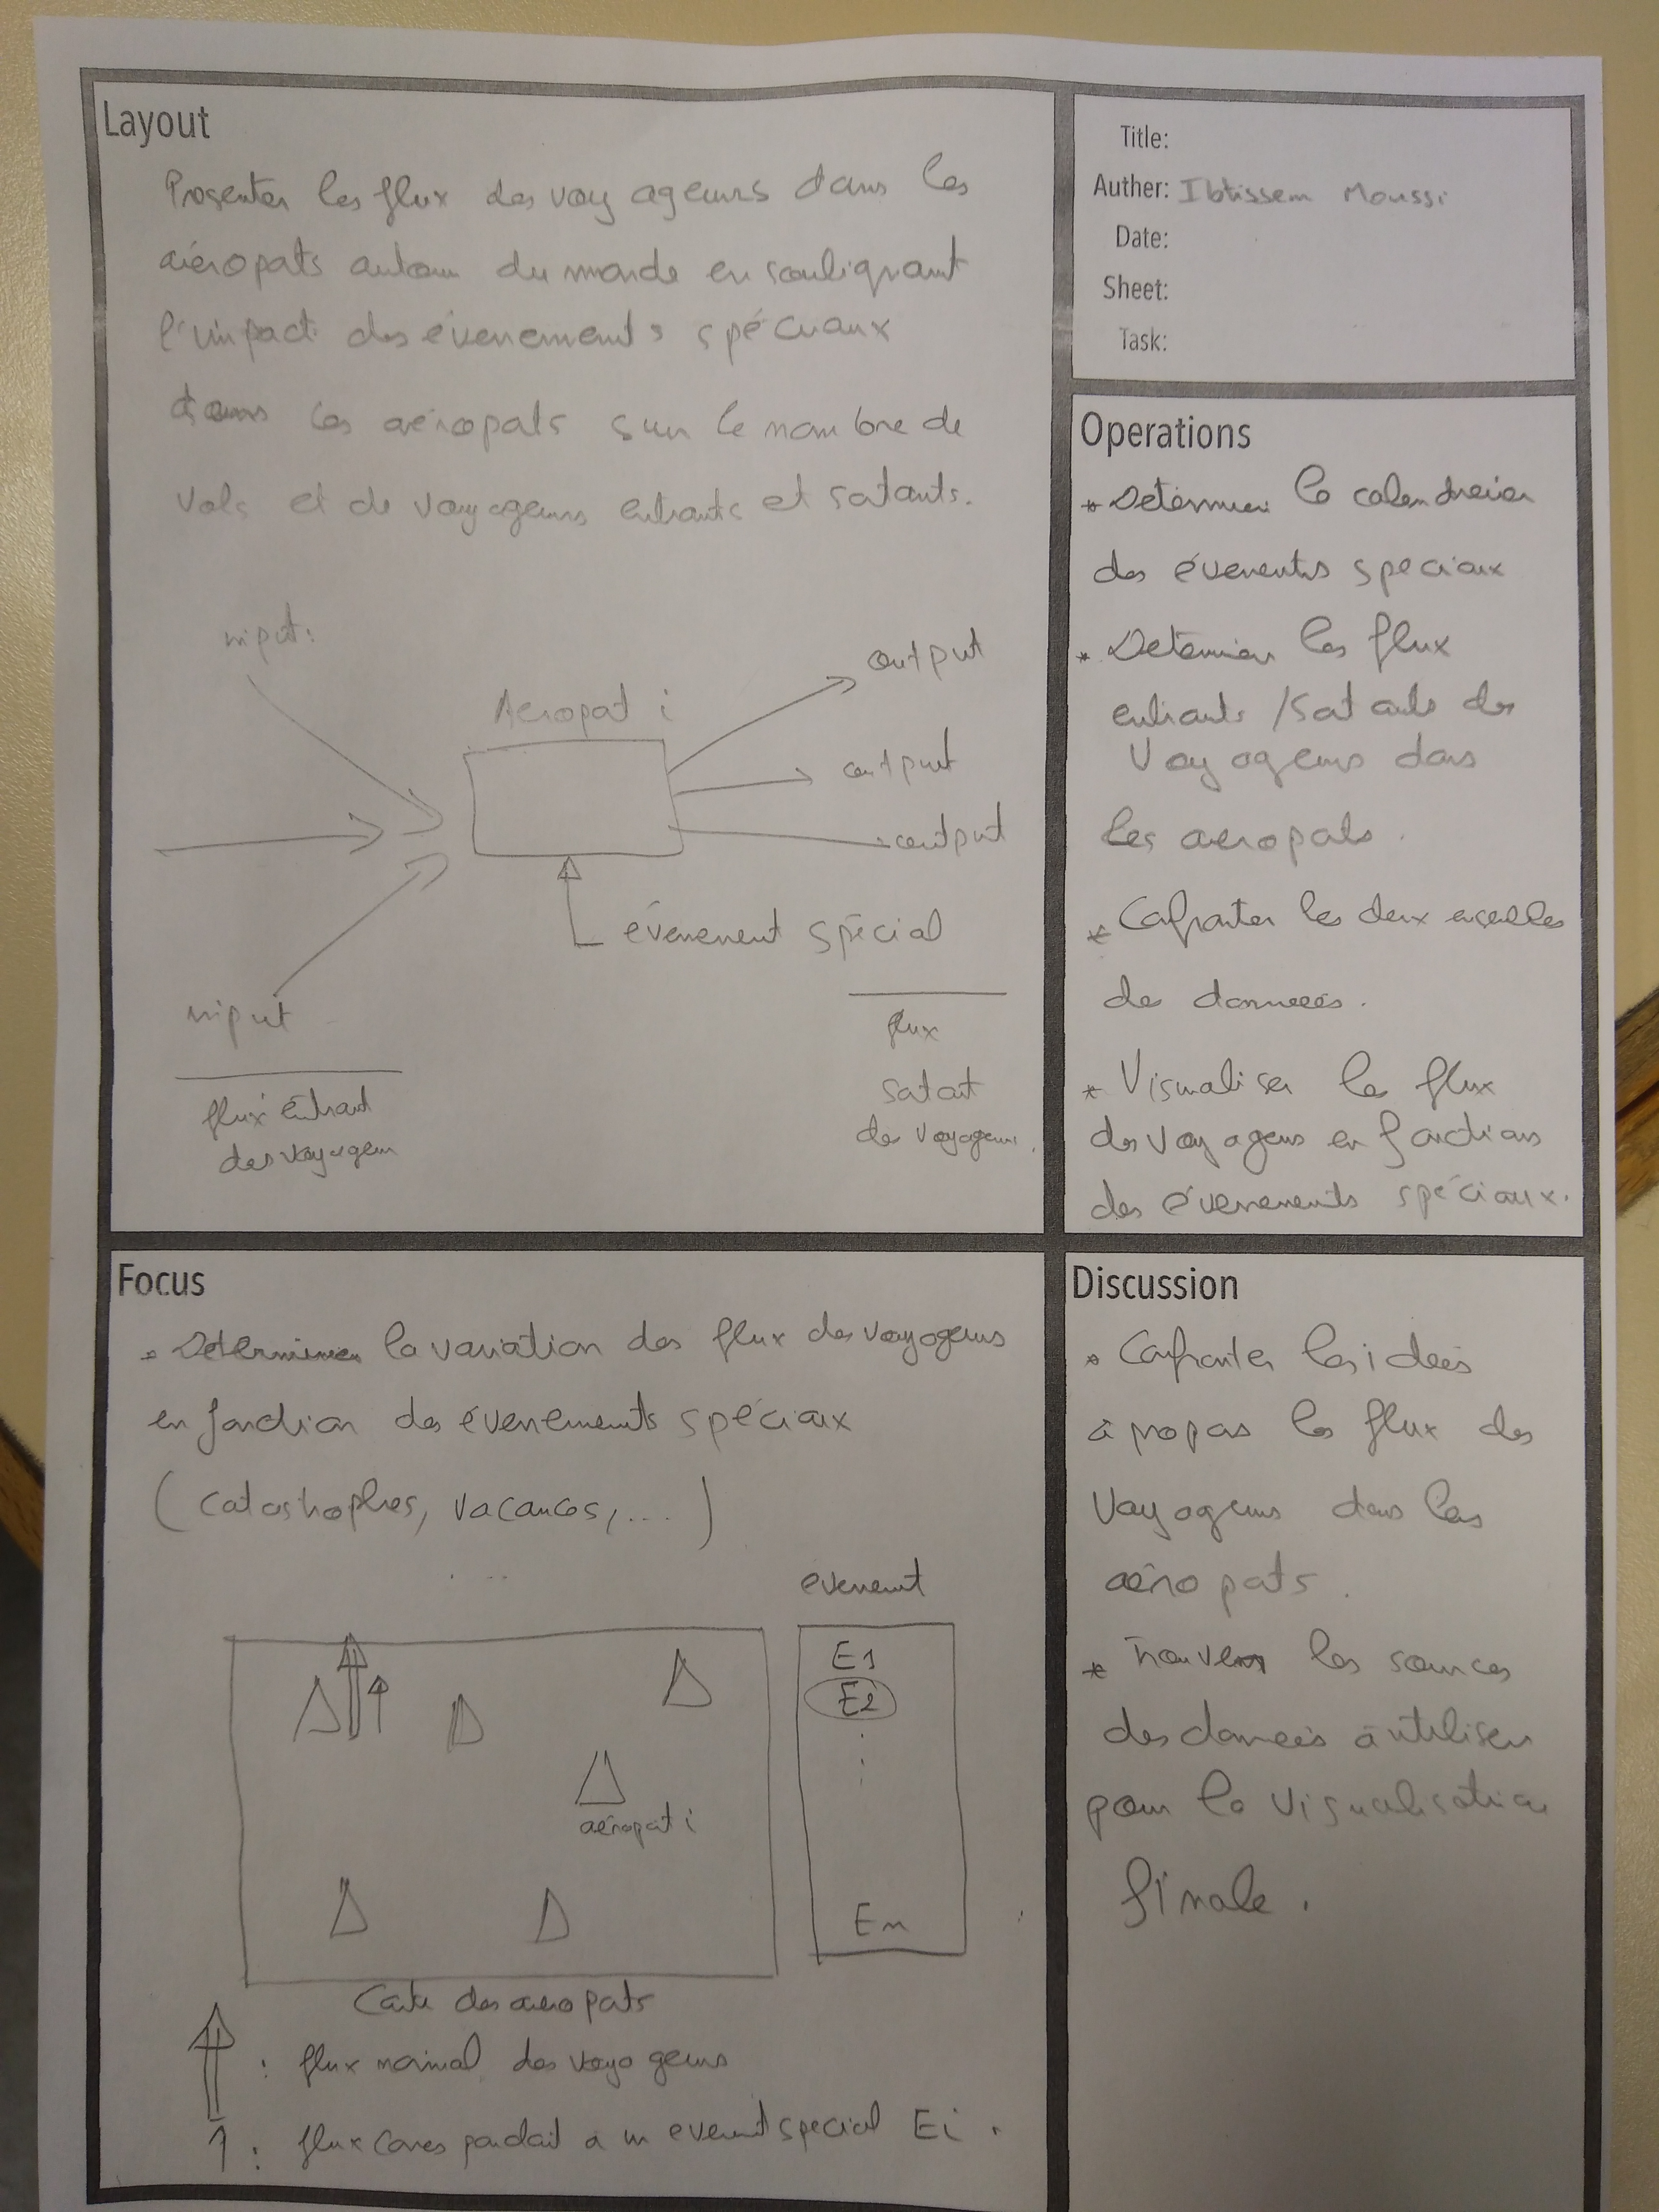 Layout
Presenter les flux des voyageurs dans les
aéroports autour du monde en soulignant
l'impact des évenements spéciaux
dans les aéroports sur le nombre de
vols et de voyageurs entrants et sortants.
input:
Aeroport i
output
output
output
évenement spécial
input
flux entrant
des voyageurs
flux
sortant
des voyageurs.
Title:
Auther: Ibtissem Moussi
Date:
Sheet:
Task:
Operations
* Déterminer le calendrier
des évenents speciaux
* Determiner les flux
entrants / sortants des
voyageurs dans
les aeroports.
* Confronter les deux
de données.
* Visualiser les flux
des voyageurs en fonctions
des évenements spéciaux.
Focus
* Déterminer la variation des flux des voyageurs
en fonction des évenements spéciaux
(catastrophes, vacances, ...)
evenemt
E1
E2
aéroport i
En
Carte des aeroports
: flux normal des voyageurs
: flux correspondait a un evenemt special Ei.
Discussion
* Confronter les idées
à propos les flux des
voyageurs dans les
aéroports.
* Trouver les sources
des données à utiliser
pour la visualisation
finale.